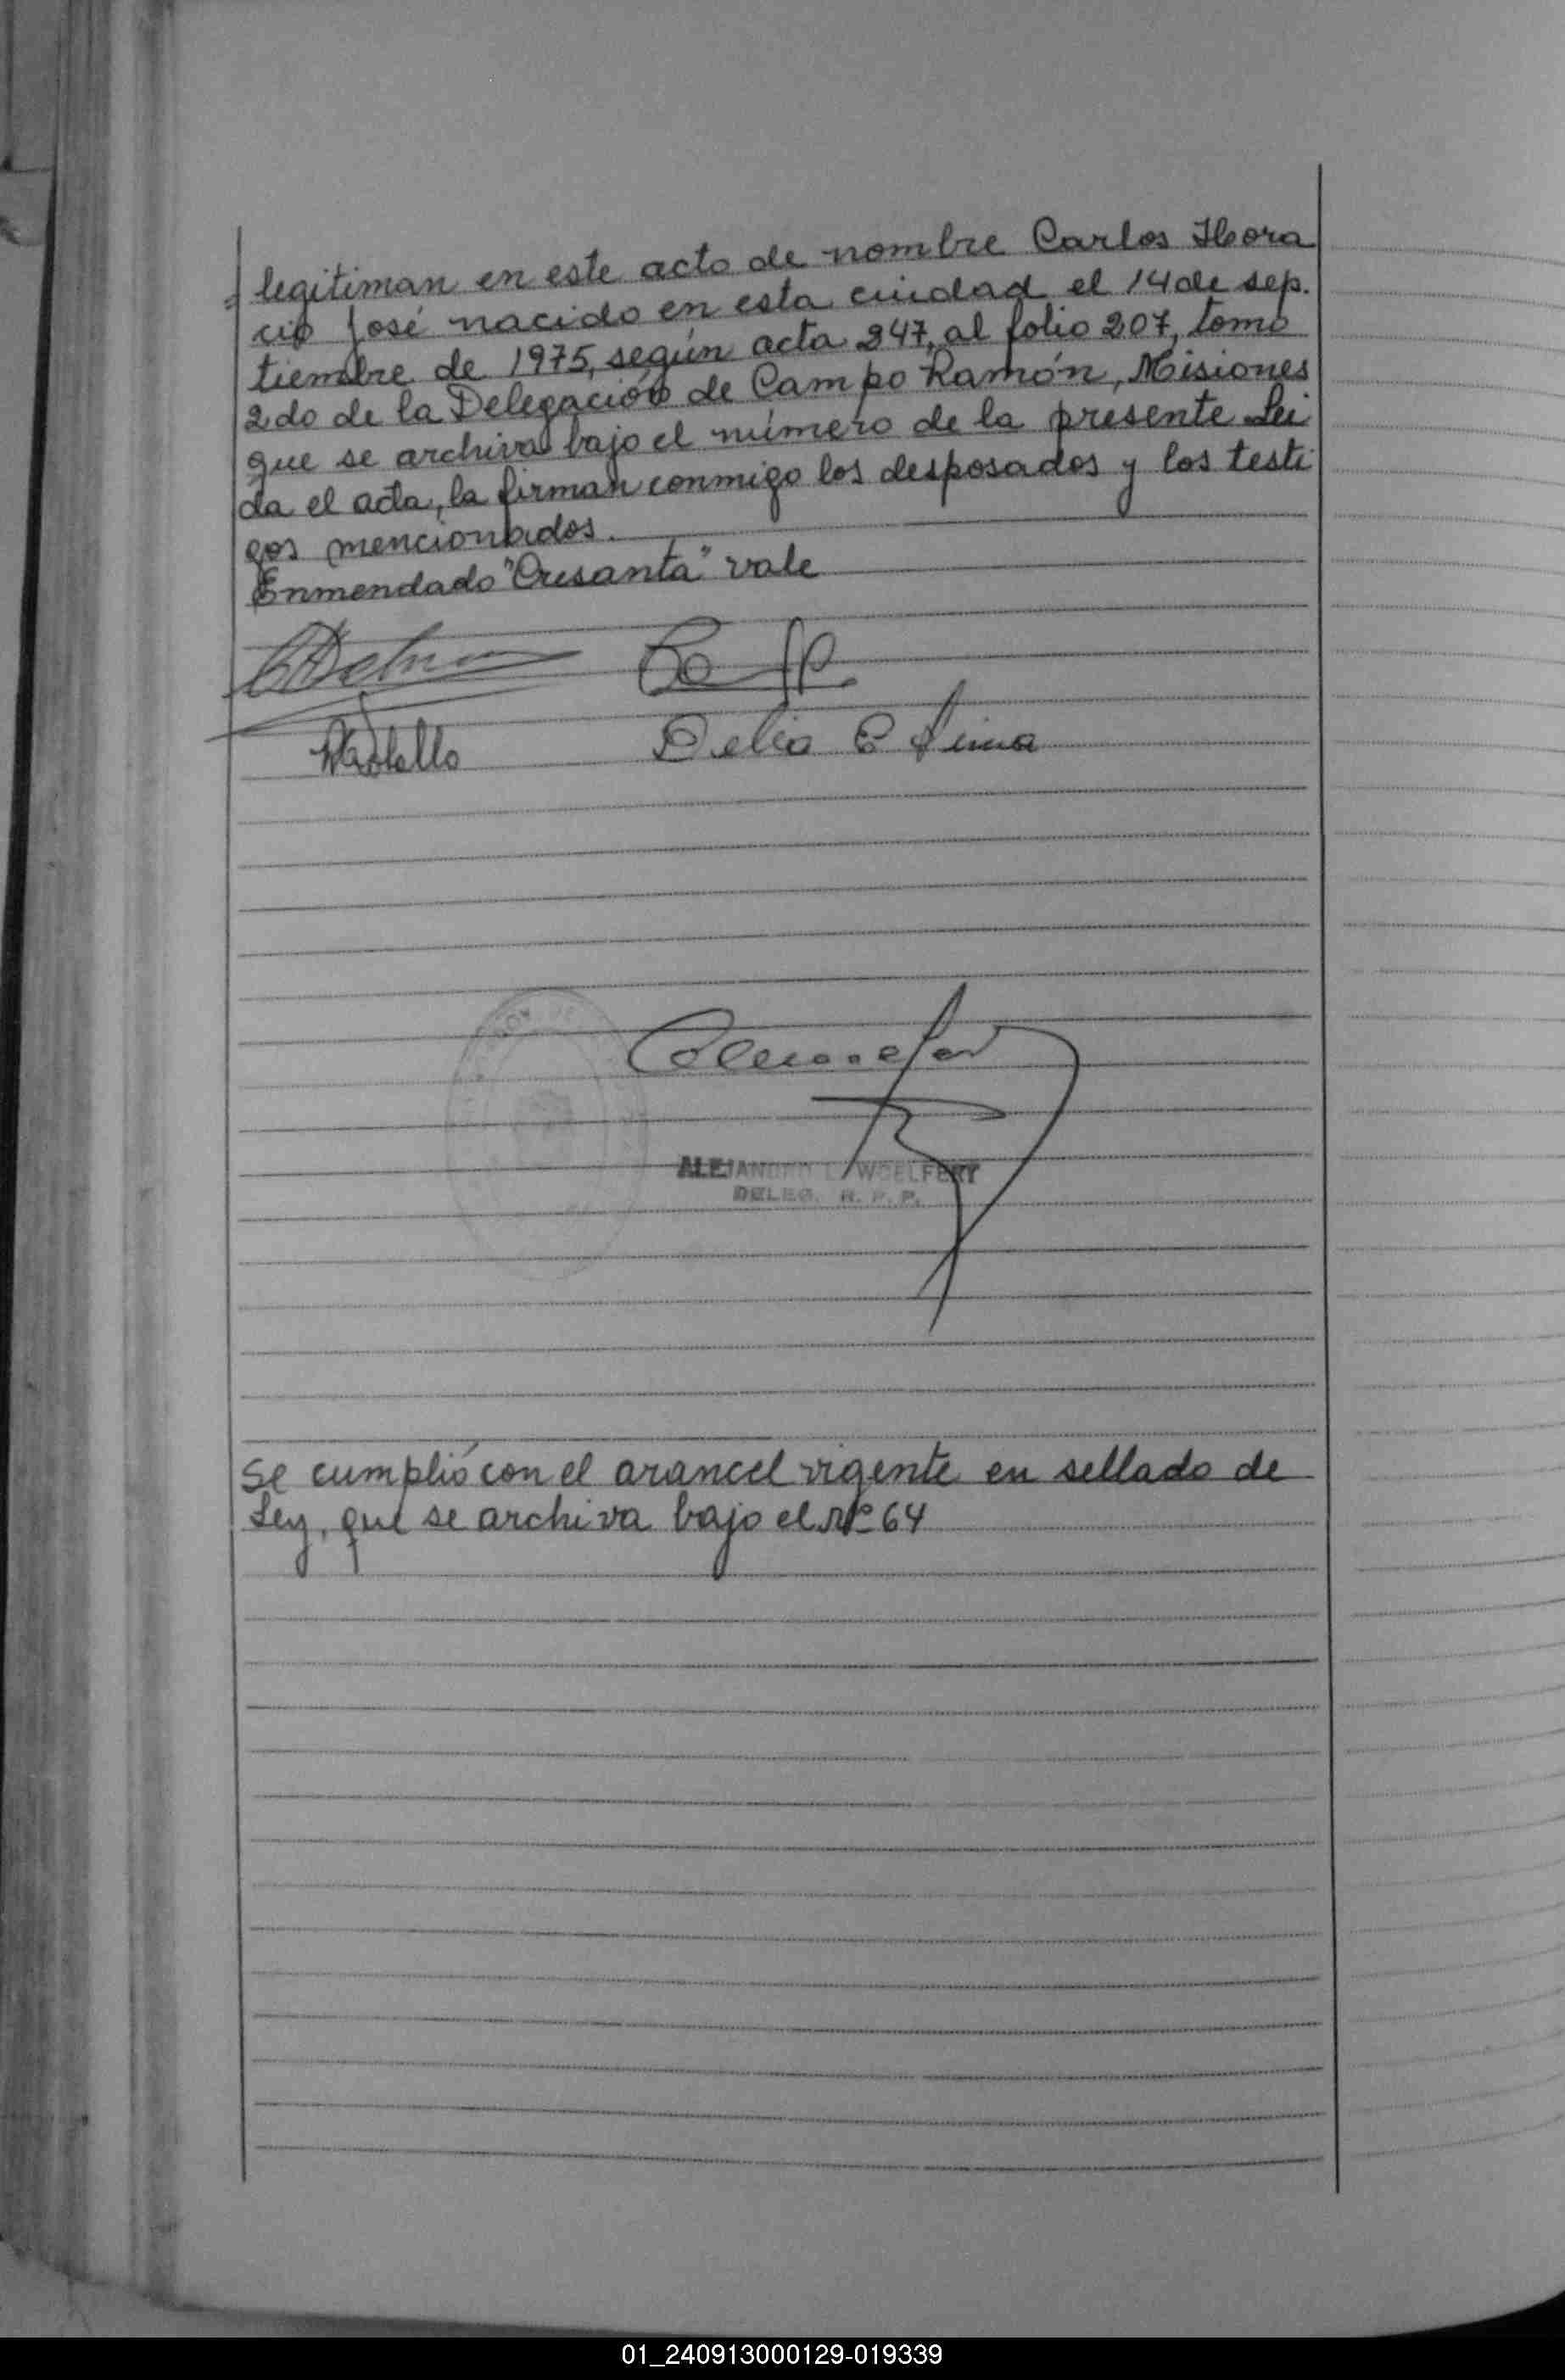 legitiman en este acto de nombre Carlos Hora
cio José nacido en esta ciudad el 14 de sep.
tiembre de 1975, según acta 247, al folio 207, tomo
2do de la Delegación de Campo Ramón, Misiones
que se archiva bajo el número de la presente Lei
da el acta, la firman conmigo los desposados y los testi
gos mencionados.
Enmendado "Cresanta" vale
Delia C Lima
ALEJANDRO L. WOELFERT
DELEG. R. P. P.
Se cumplió con el arancel vigente en sellado de
Ley, que se archiva bajo el Nº 64
01_240913000129-019339